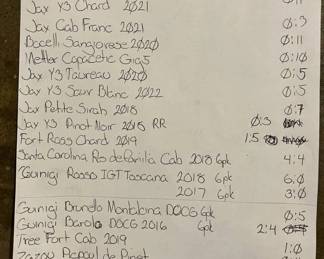 Jax Y3 Chard 2021
Jax Cab Franc 2021 0:3
Bocelli Sangiovese 2020 0:11
Mettler Copacetic GSM 0:10
Jax Y3 Taureau 2020 0:5
Jax Y3 Sauv Blanc 2022 0:5
Jax Petite Sirah 2018 0:7
Jax Y3 Pinot Noir 2018 RR 0:3
Fort Ross Chard 2019 1:5
Santa Carolina Rs de Familia Cab 2018 6pk 4:4
Guinigi Rosso IGT Toscana 2018 6pk 6:0
2017 6pk 3:0
Guinigi Brunello Montalcino DOCG 6pk 0:5
Guinigi Barolo DOCG 2016 6pk 2:4
Tree Fort Cab 2019 1:0
Picpoul de Pinet